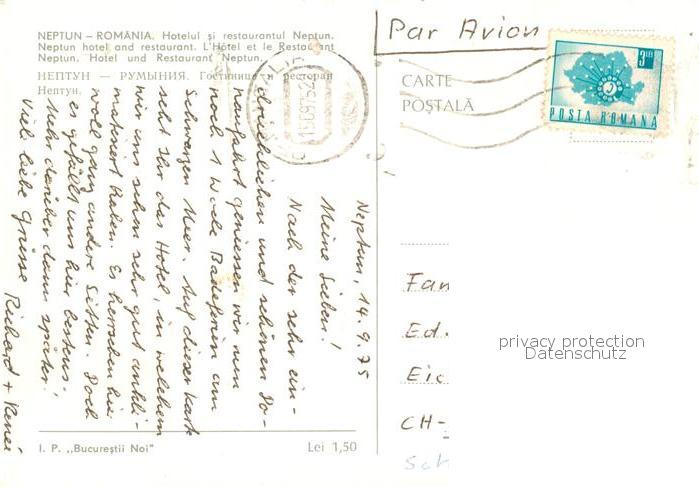 NEPTUN – ROMÂNIA. Hotelul și restaurantul Neptun.
Neptun hotel and restaurant. L'Hôtel et le Restaurant
Neptun. Hotel und Restaurant Neptun.
НЕПТУН — РУМЫНИЯ. Гостиница и ресторан
Нептун.
Neptun, 14.9.75
Meine Lieben!
Nach der sehr ein-
drücklichen und schönen Do-
naufahrt geniessen wir nun
noch 1 Woche Badeferien am
Schwarzen Meer. Auf dieser Karte
seht Ihr das Hotel, in welchem
wir uns schon sehr gut akkli-
matisiert haben. Es herrschen hier
wohl ganz andere Sitten. Doch
es gefällt uns hier bestens.
Mehr darüber dann später!
Viele liebe Grüsse Richard + Renée
I. P. „Bucureștii Noi"
Lei 1,50
Par Avion
CARTE
POȘTALĂ
3 LEI
POSTA ROMANA
Fam
Ed.
Eic
CH-
Sch
privacy protection
Datenschutz